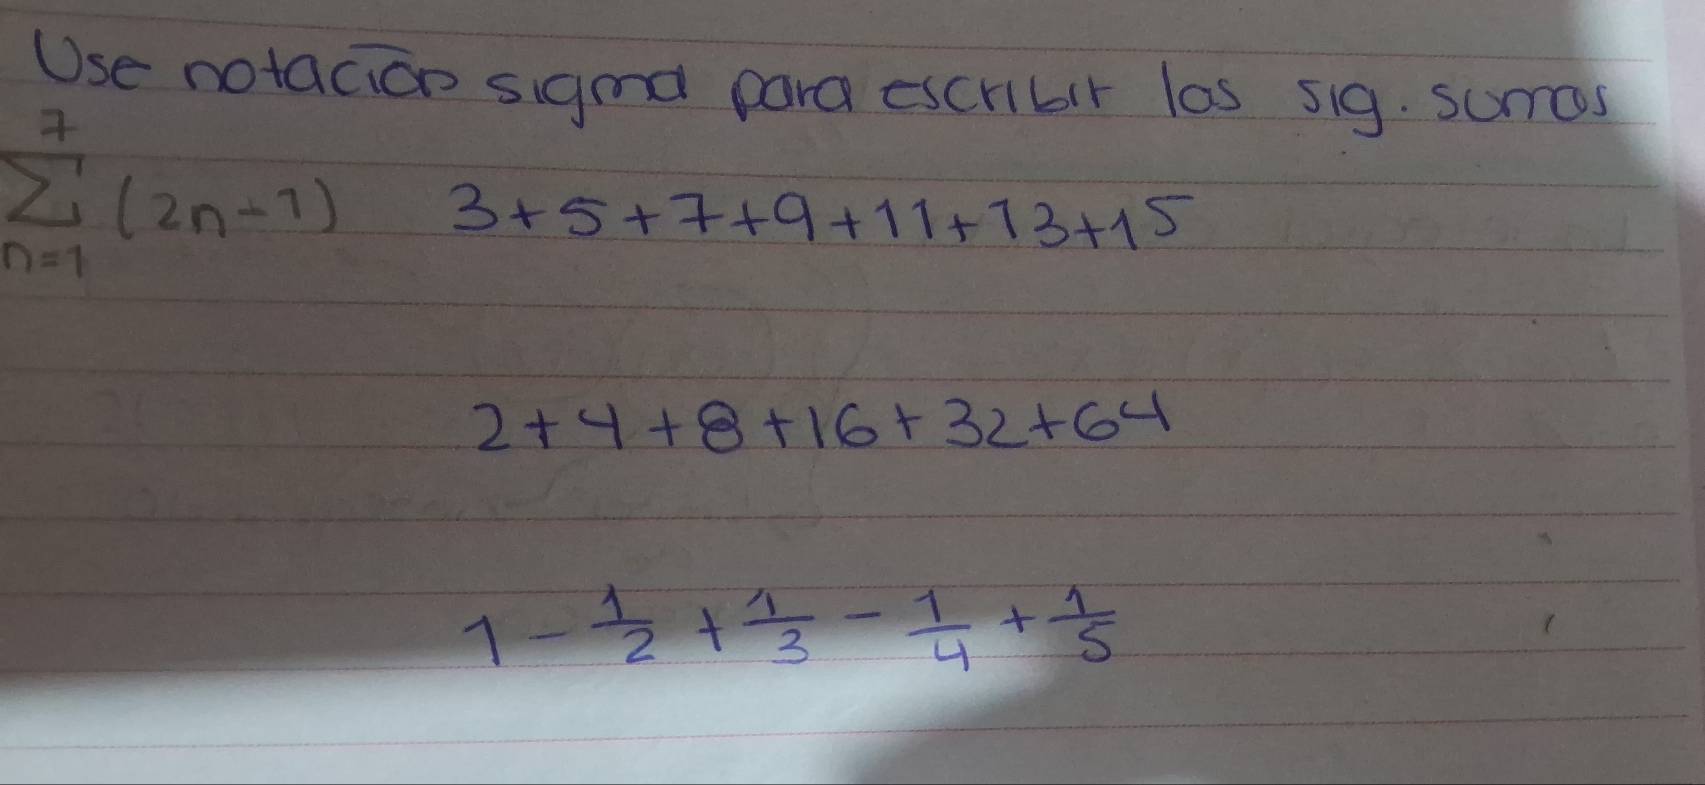 Use notación sigma para escribir las sig. sumas
7
∑ (2n-1) 3+5+7+9+11+13+15
n=1
2+4+8+16+32+64
1 - 1/2 + 1/3 - 1/4 + 1/5